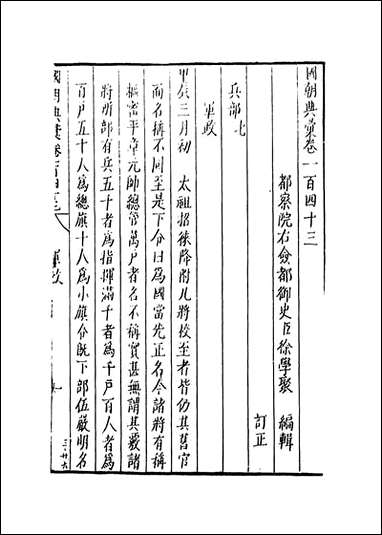 國朝典彙卷一百四十三
都察院右僉都御史臣徐學聚 編輯
訂正
兵部七
軍政
甲辰三月初 太祖招徠降附凡將校至者皆仍其舊官
而名稱不同至是下令曰為國當先正名今諸將有稱
樞密平章元帥總管萬戶者名不稱實甚無謂其覈諸
將所部有兵五千者為指揮滿千者為千戶百人者為
百戶五十人為總旗十人為小旗令既下部伍嚴明名
國朝典彙卷一百四十三
軍政